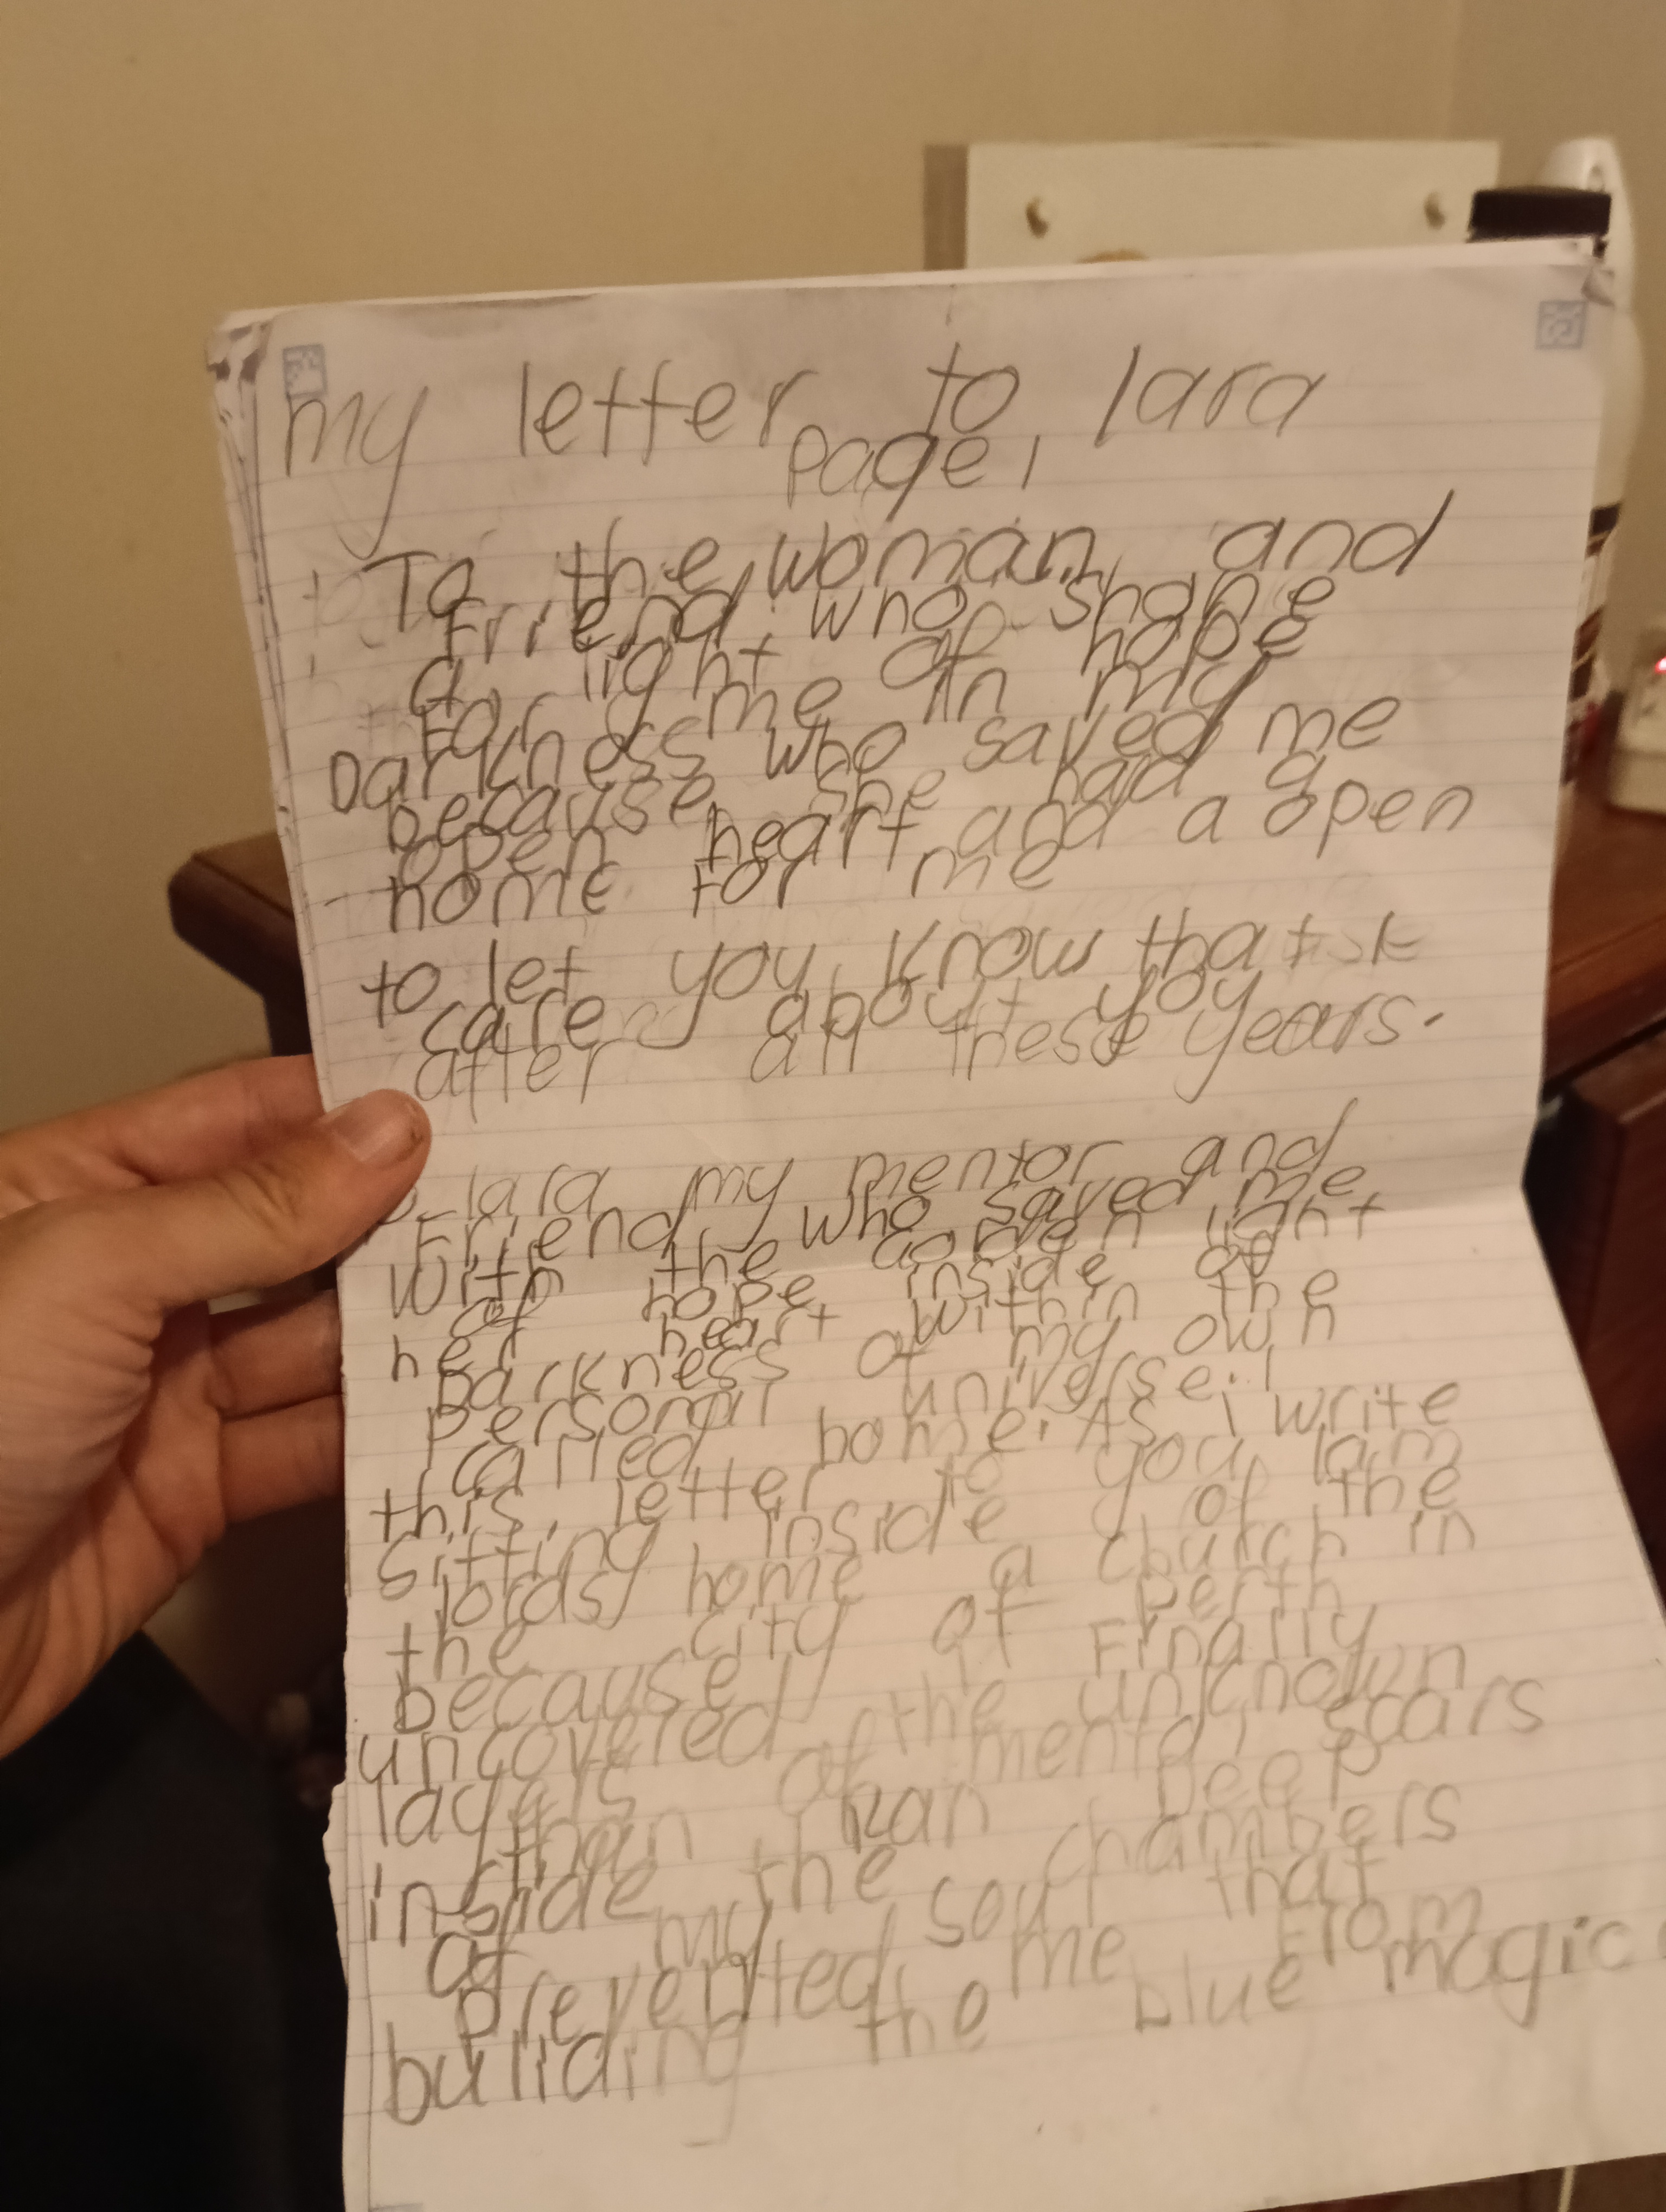 my letter to lara
page 1
To the woman and
Friend who shone
a light of hope
For me in my
Darkness who saved me
because she had a
open heart and a open
home for me
to let you know that
care about you
after all these years.
lara my mentor and
Friend who saved me
with the golden light
of hope inside of
her heart within the
Darkness of my own
personal universe.
called home. As i write
this letter to you Iam
sitting inside of the
lords home a church in
the city of perth
because i Finally
uncovered the unknown
layers of mental scars
than ran Deep
inside the chambers
of my soul that
prevented me From
buliding the blue magic